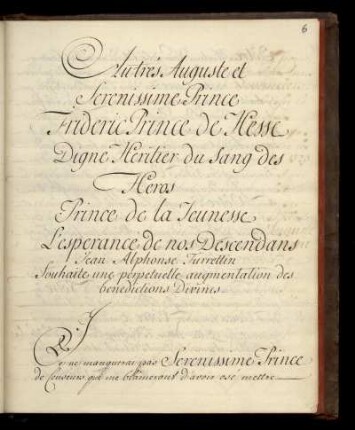 6
Au trés Auguste et
Serenissime Prince
Frideric Prince de Hesse
Digne Heritier du Sang des
Heros
Prince de la Jeunesse
L'esperance de nos Descendans
Jean Alphonse Turrettin
Souhaite une perpetuelle augmentation des
benedictions Divines
ne manquerai pas Serenissime Prince
de qui me blameront d'avoir osé mettre